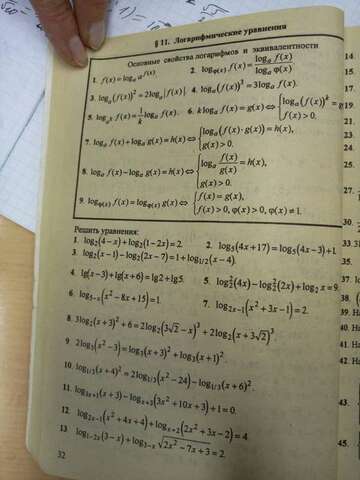 § 11. Логарифмические уравнения
Основные свойства логарифмов и эквивалентности
1. f(x) = logₐ a^f(x). 2. log_φ(x) f(x) = logₐ f(x) / logₐ φ(x).
3. logₐ(f(x))² = 2logₐ|f(x)|. 4. logₐ(f(x))³ = 3logₐ f(x).
5. log_a^k f(x) = 1/k logₐ f(x). 6. k logₐ f(x) = g(x) ⇔ { logₐ(f(x))^k = g(x), f(x) > 0.
7. logₐ f(x) + logₐ g(x) = h(x) ⇔ { logₐ(f(x) · g(x)) = h(x), g(x) > 0.
8. logₐ f(x) − logₐ g(x) = h(x) ⇔ { logₐ f(x)/g(x) = h(x), g(x) > 0.
9. log_φ(x) f(x) = log_φ(x) g(x) ⇔ { f(x) = g(x), f(x) > 0, φ(x) > 0, φ(x) ≠ 1.
Решить уравнения:
1. log₂(4 − x) + log₂(1 − 2x) = 2. 2. log₅(4x + 17) = log₅(4x − 3) + 1.
3. log₂(x − 1) − log₂(2x − 7) = 1 + log₁/₂(x − 4).
4. lg(x − 3) + lg(x + 6) = lg2 + lg5. 5. log₂²(4x) − log₂²(2x) + log₂ x = 9.
6. log₅₋ₓ(x² − 8x + 15) = 1. 7. log₂ₓ₋₁(x² + 3x − 1) = 2.
8. 3log₂(x + 3)² + 6 = 2log₂(3√2 − x)³ + 2log₂(x + 3√2)³.
9. 2log₃(x² − 3) = log₃(x + 3)² + log₃(x + 1)².
10. log₁/₃(x + 4)² = 2log₁/₃(x² − 24) − log₁/₃(x + 6)².
11. log₃ₓ₊₁(x + 3) − logₓ₊₃(3x² + 10x + 3) + 1 = 0.
12. log₂ₓ₋₁(x² + 4x + 4) + logₓ₊₂(2x² + 3x − 2) = 4.
13. log₁₋₂ₓ(3 − x) + log₃₋ₓ √(2x² − 7x + 3) = 2.
32